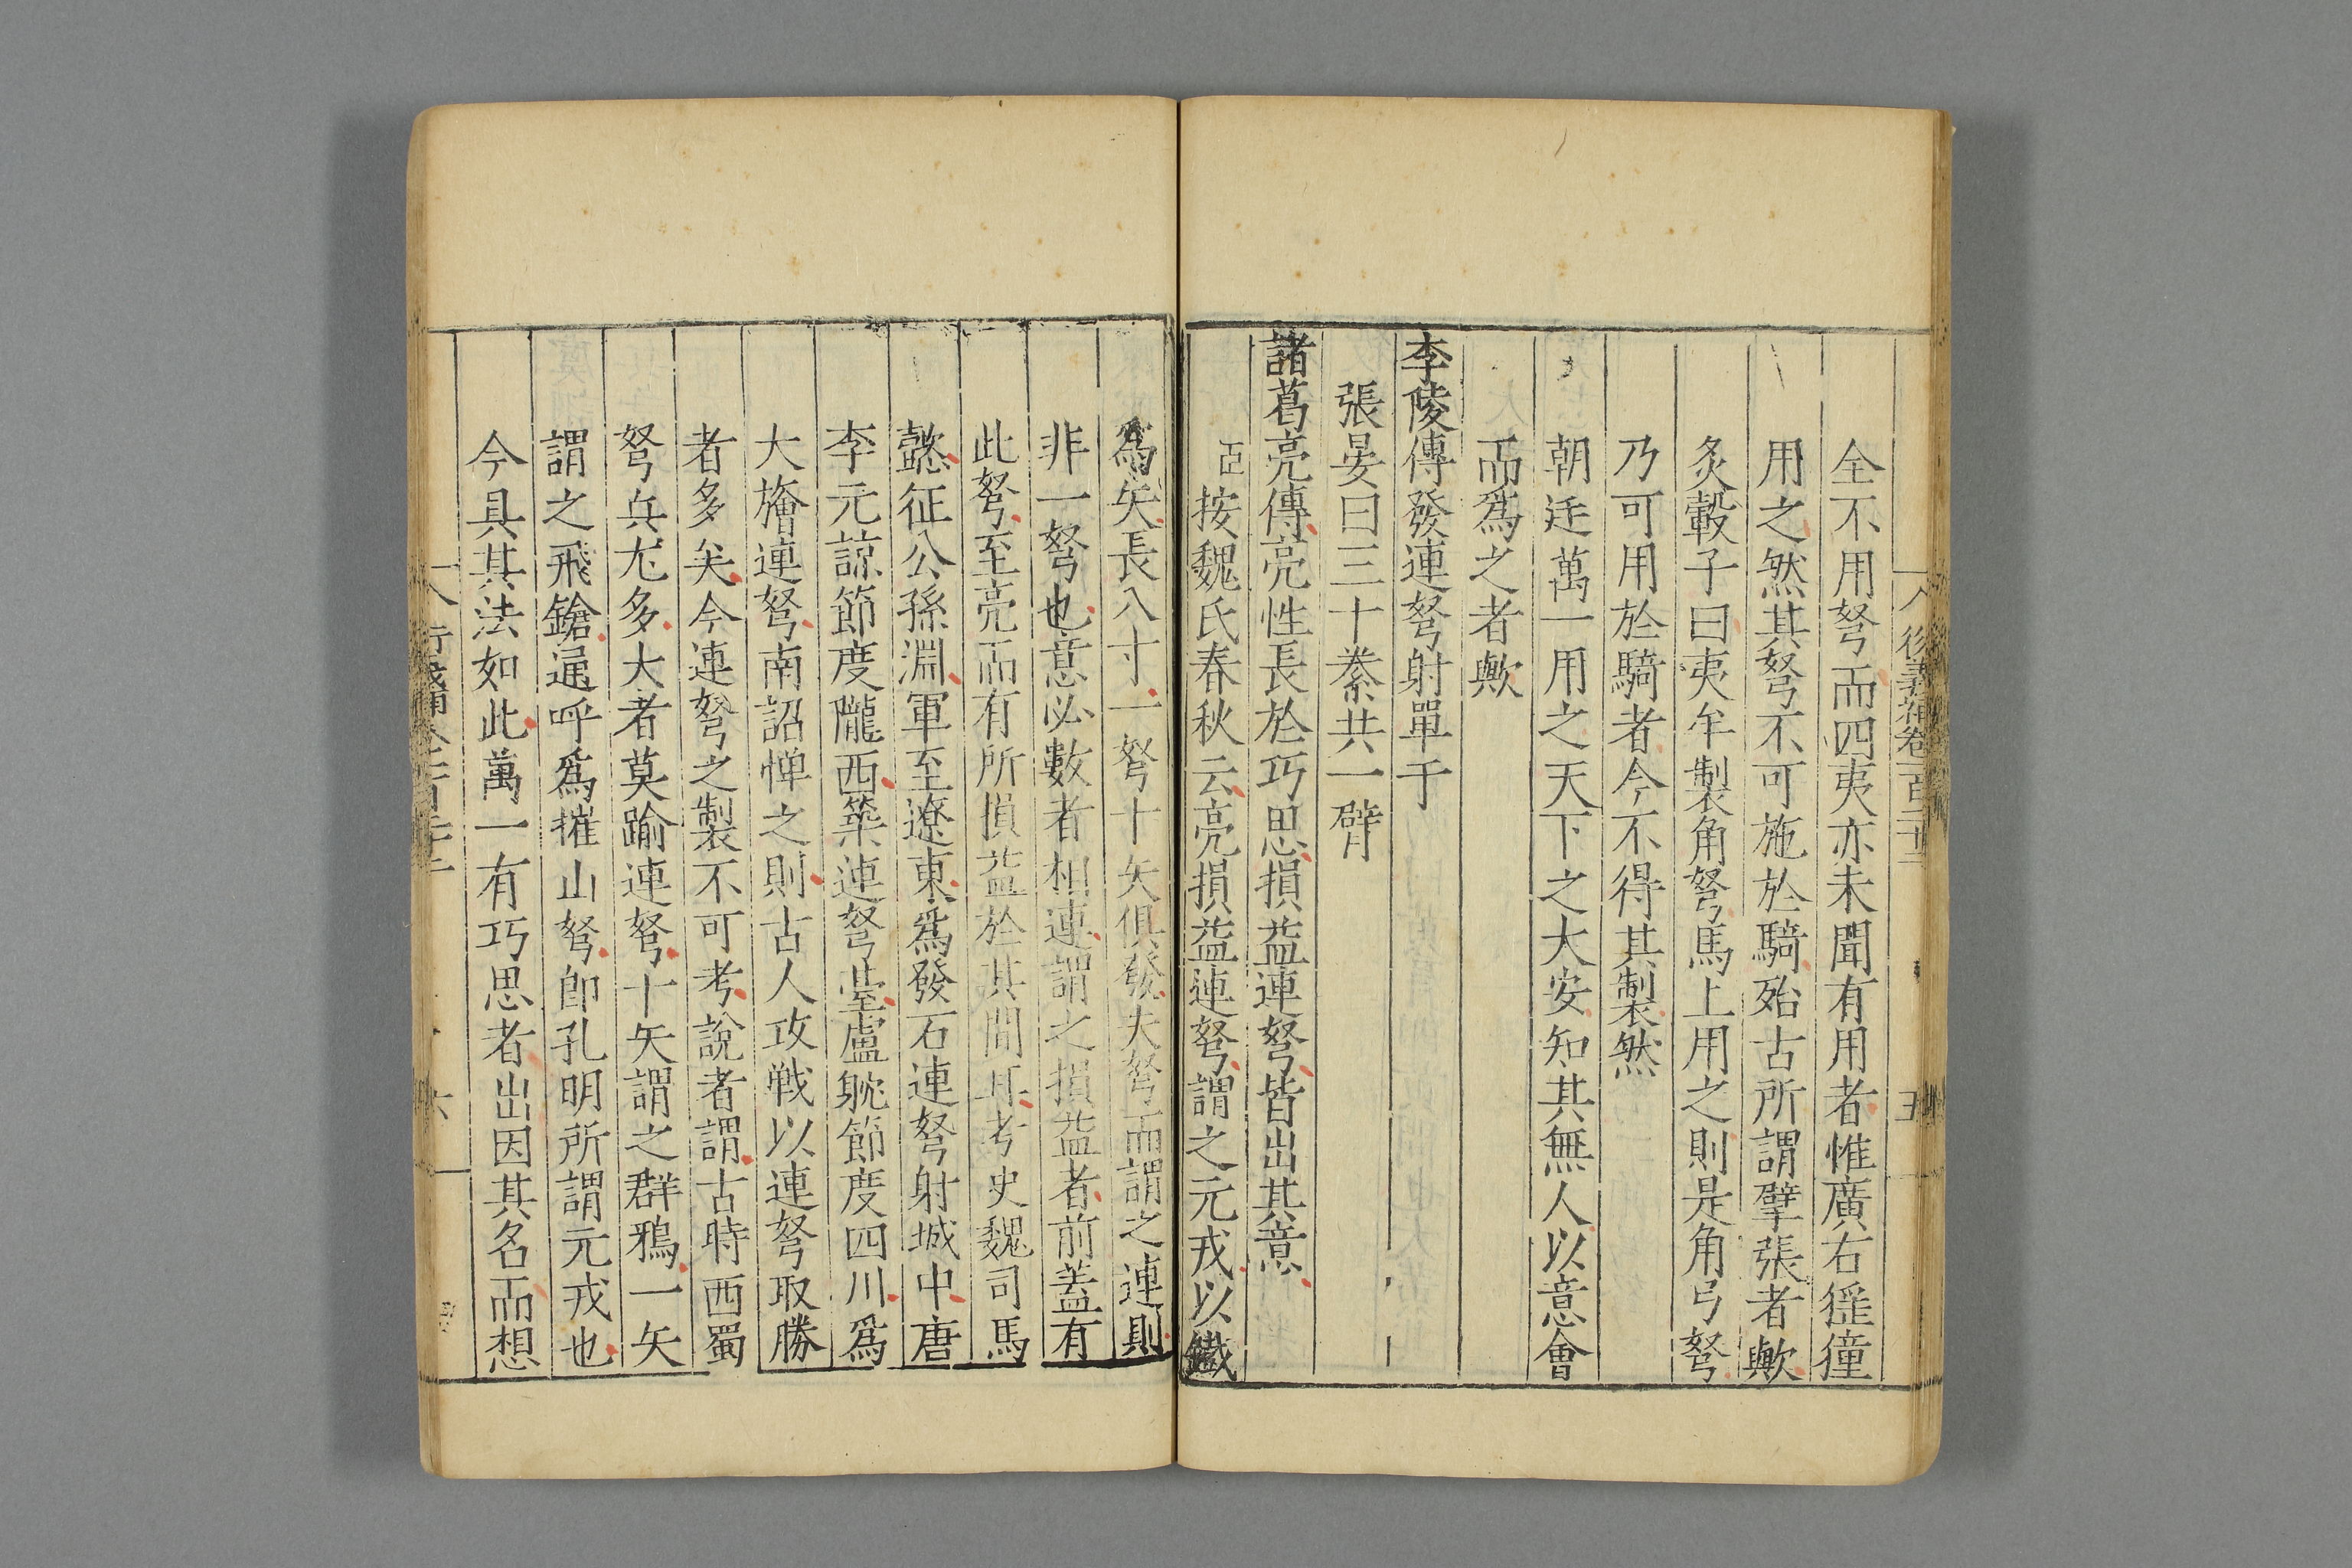 衍義補卷一百二十二
五
全不用弩而四夷亦未聞有用者惟廣右㹘獞
用之然其弩不可施於騎殆古所謂擘張者歟
炙轂子曰夷牟製角弩馬上用之則是角弓弩
乃可用於騎者今不得其製然
朝廷萬一用之天下之大安知其無人以意會
而爲之者歟
李陵傳發連弩射單于
張晏曰三十絭共一臂
諸葛亮傳亮性長於巧思損益連弩皆出其意
臣按魏氏春秋云亮損益連弩謂之元戎以鐵
爲矢長八寸一弩十矢俱發夫弩而謂之連則
非一弩也意必數者相連謂之損益者前蓋有
此弩至亮而有所損益於其間耳考史魏司馬
懿征公孫淵軍至遼東爲發石連弩射城中唐
李元諒節度隴西築連弩臺盧耽節度四川爲
大旝連弩南詔憚之則古人攻戦以連弩取勝
者多矣今連弩之製不可考說者謂古時西蜀
弩兵尤多大者莫踰連弩十矢謂之群鴉一矢
謂之飛鎗通呼爲摧山弩卽孔明所謂元戎也
今具其法如此萬一有巧思者出因其名而想
六